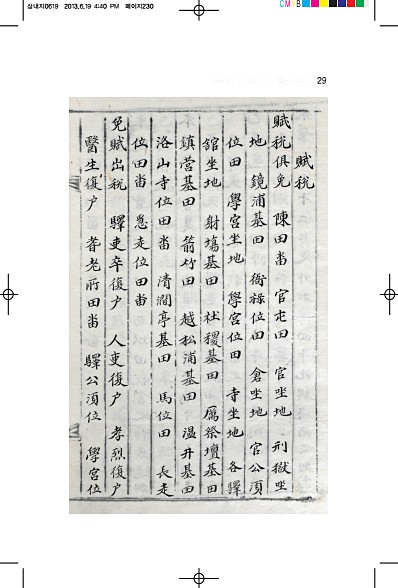 삼내지0619 2013.6.19 4:40 PM 페이지230
CMYB
29
賦稅
賦稅俱免 陳田畓 官屯田 官坐地 刑獄坐
地 鏡浦基田 衙祿位田 倉坐地 官公須
位田 學宮坐地 學宮位田 寺坐地 各驛
舘坐地 射塲基田 社稷基田 厲祭壇基田
鎭營基田 箭竹田 越松浦基田 温井基田
洛山寺位田畓 清澗亭基田 馬位田 長走
位田畓 急走位田畓
免賦出稅 驛吏卒復户 人吏復户 孝烈復户
醫生復户 耆老所田畓 驛公須位 學宮位